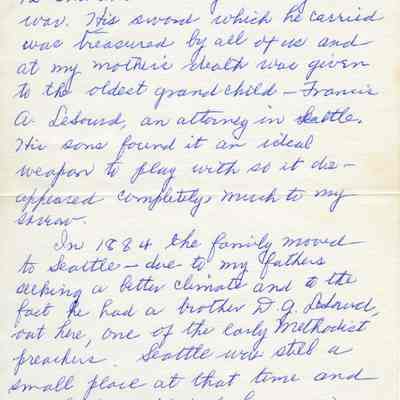 war. His sword which he carried
was treasured by all of us and
at my mother's death was given
to the oldest grandchild - Francis
A. LeSourd, an attorney in Seattle.
His sons found it an ideal
weapon to play with so it dis-
appeared completely, much to my
sorrow.
In 1884 the family moved
to Seattle - due to my fathers
seeking a better climate and to the
fact he had a brother D. G. LeSourd,
out here, one of the early Methodist
preachers. Seattle was still a
small place at that time and